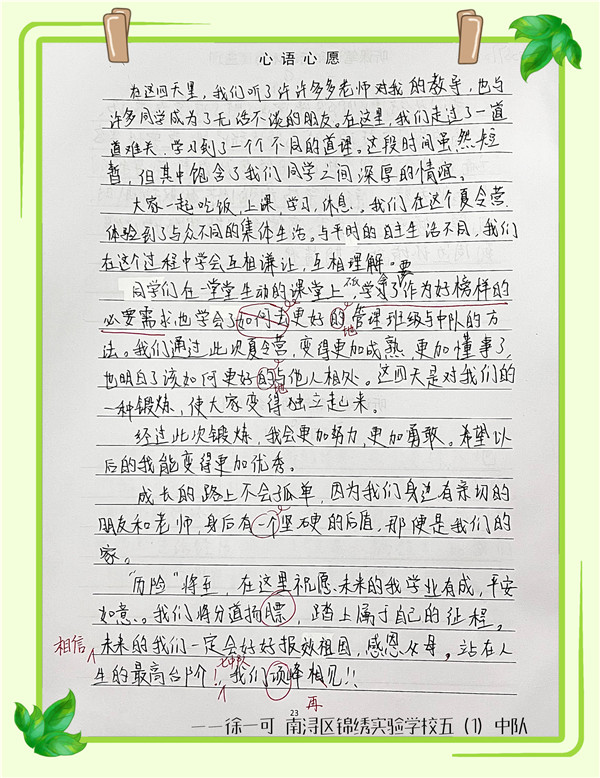 心语心愿
在这四天里，我们听了许许多多老师对我的教导，也与
许多同学成为了无话不谈的朋友。在这里，我们走过了一道
道难关，学习到了一个个不同的道理。这段时间虽然短
暂，但其中饱含了我们同学之间深厚的情谊。
大家一起吃饭，上课，学习，休息。我们在这个夏令营
体验到了与众不同的集体生活。与平时的自主生活不同，我们
在这个过程中学会互相谦让，互相理解。
同学们在一堂堂生动的课堂上，学会了作为好榜样的
必要需求也学会了如何去更好的管理班级与中队的方
地
法。我们通过此次夏令营，变得更加成熟，更加懂事了，
也明白了该如何更好的与他人相处。这四天是对我们的
地
一种锻炼，使大家变得独立起来。
经过此次锻炼，我会更加努力，更加勇敢。希望以
后的我能变得更加优秀。
成长的路上不会孤单，因为我们身边有亲切的
朋友和老师，身后有一个坚硬的后盾，那便是我们的
家。
"历险"将至，在这里祝愿未来的我学业有成，平安
如意。我们将分道扬镖，踏上属于自己的征程。
相信
未来的我们一定会好好报效祖国，感恩父母。站在人
生的最高台阶！我们顶峰相见！！
再
23
——徐一可 南浔区锦绣实验学校五（1）中队